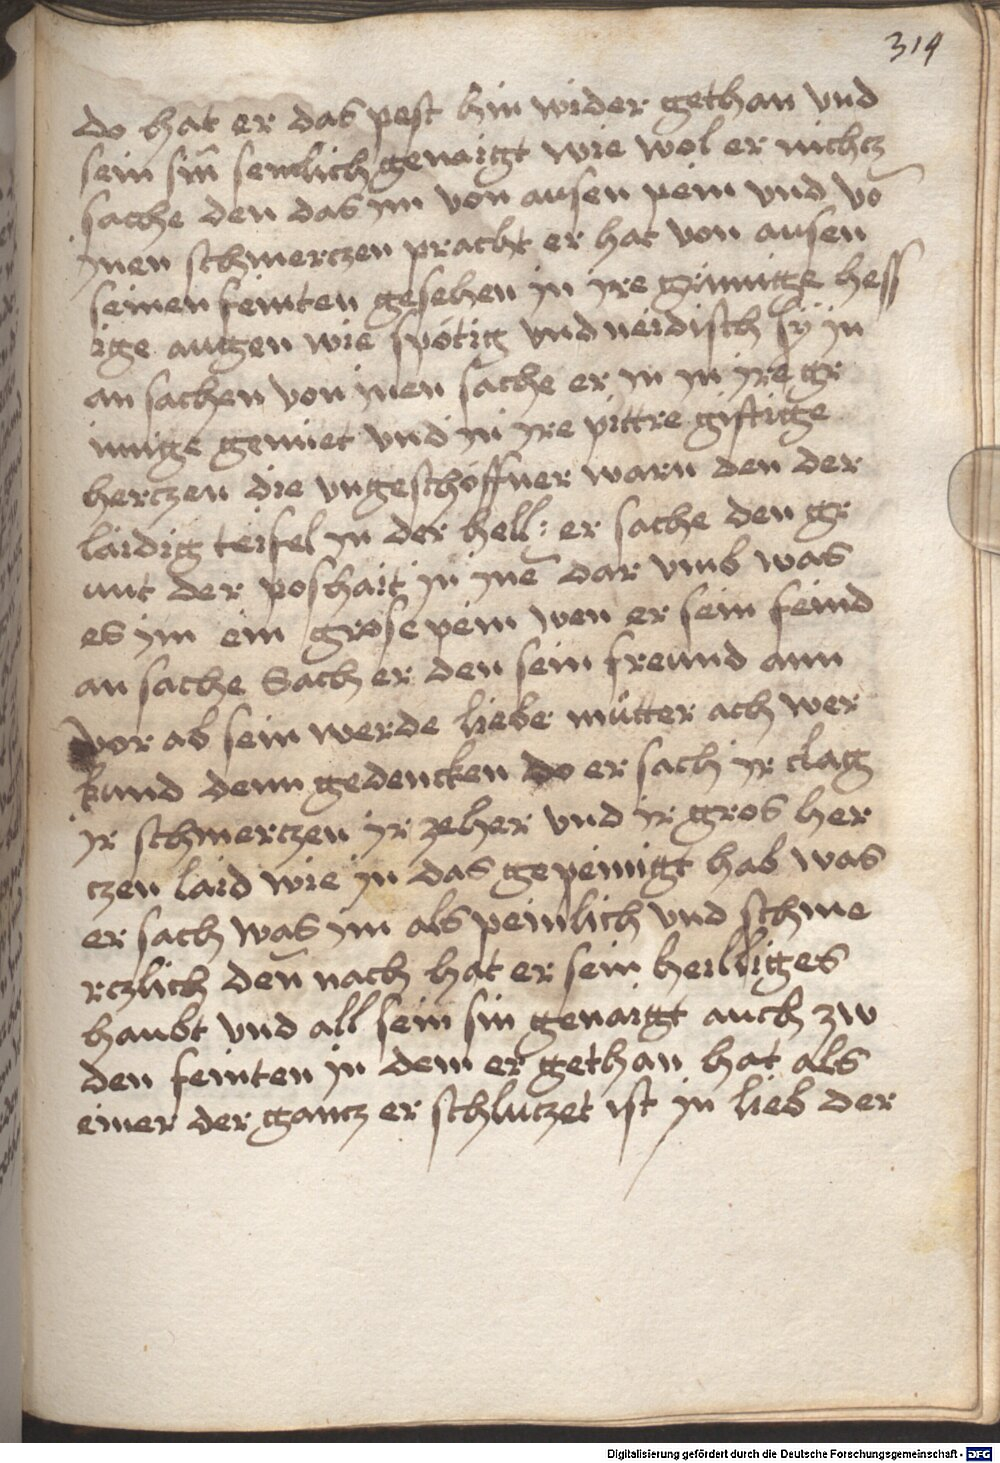 319
do hat er das pest hin wider gethan vnd
sein sin̄ semlich genaigt wie wol er nichcz
sache den das im von ausen pein vnd vō
jnen schmerczen pracht er hat von ausen
seinen feinten gesehen jn jre grimige hess
ige augen wie spötig vnd neidisch sÿ jn
an sachen von jnen sache er jn jn jre gr
imige gemiet vnd jn jre pittre giftige
herczen die vngeschöffner warn den der
laidig teifel jn der hell: er sache den gr
unt der poshait jn jnē dar vmb was
es jm ein grose pein wen er sein feind
an sache Sach er den sein freund ann
vor ab sein werde liebe můtter ach wer
kund denn gedencken do er sach jr clag
jr schmerczen jr zeher vnd jr gros her
czen laid wie jn das gepeinigt hab was
er sach was jm als peinlich vnd schme
rczlich den̄ nach hat er sein heilliges
haubt vnd all sein sin genaigt auch zw
den feinten jn dem er gethan hat als
einer der gancz er schluczet ist jn lieb der
Digitalisierung gefördert durch die Deutsche Forschungsgemeinschaft - DFG